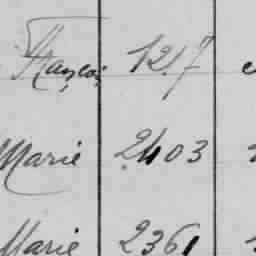 Françoi 1217
Marie 2403
Marie 2361